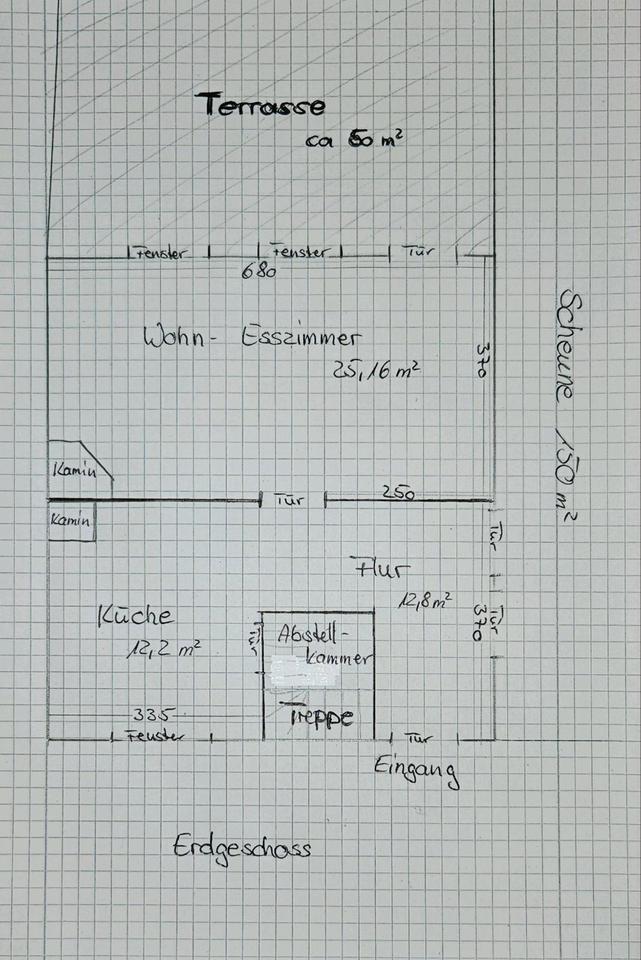 Terrasse
ca 60 m²
Fenster
Fenster
Tür
680
Wohn- Esszimmer
25,16 m²
370
Scheune 150 m²
Kamin
Tür
250
Kamin
Tür
Flur
12,8 m²
Tür
370
Küche
12,2 m²
Tür
Abstell-
kammer
Treppe
335
Fenster
Tür
Eingang
Erdgeschoss